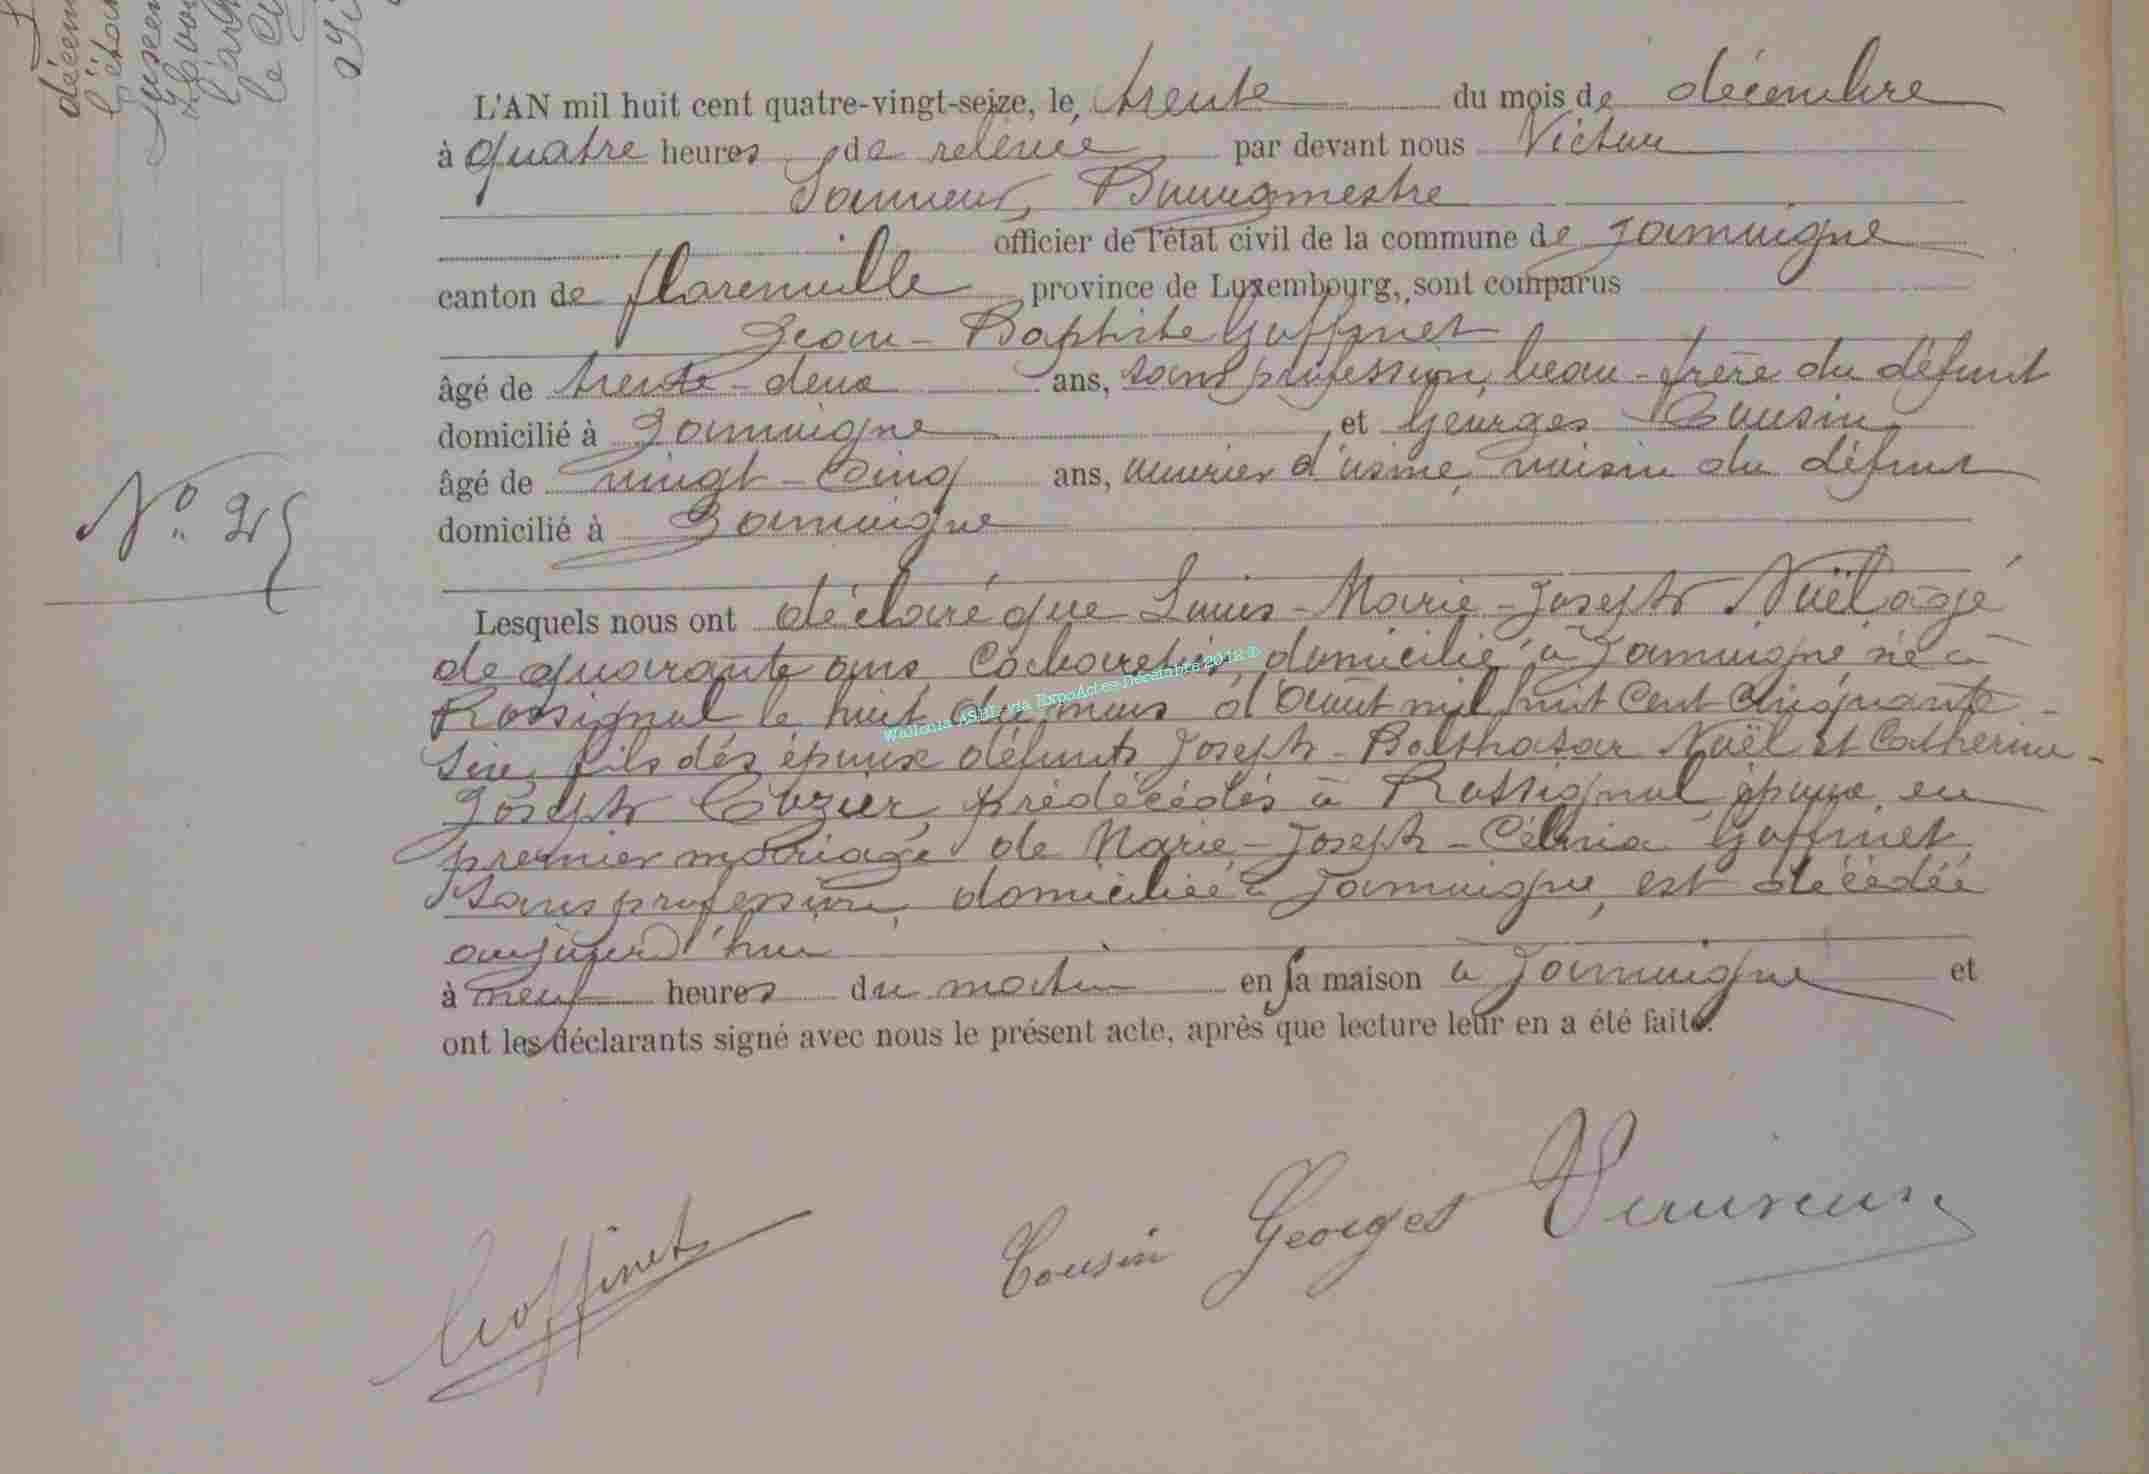 L'AN mil huit cent quatre-vingt-seize, le, trente du mois de décembre
à quatre heures de relevée par devant nous Victor
Bourgmestre
officier de l'état civil de la commune de Jamoigne
canton de florenville province de Luxembourg, sont comparus
Jean-Baptiste Goffinet
âgé de trente-deux ans, sans profession, beau-frère du défunt
domicilié à Jamoigne, et Georges Cousin,
âgé de vingt-cinq ans, ouvrier d'usine, voisin du défunt
domicilié à Jamoigne
N° 25
Lesquels nous ont déclaré que Louis-Marie-Joseph Noël âgé
de quarante ans, Cabaretier, domicilié à Jamoigne, né à
Rossignol le huit du mois d'Août mil huit cent cinquante-
six, fils des époux défunts Joseph-Balthasar Noël et Catherine-
Joseph Cozier, prédécédés à Rossignol, époux, en
premier mariage de Marie-Joseph-Célinia Goffinet,
sans profession, domiciliée à Jamoigne, est décédée
aujourd'hui
à neuf heures du matin en sa maison à Jamoigne et
ont les déclarants signé avec nous le présent acte, après que lecture leur en a été faite.
Goffinet Cousin Georges
Wallonia ASBL via ExpoActes Décembre 2012 ©
décem